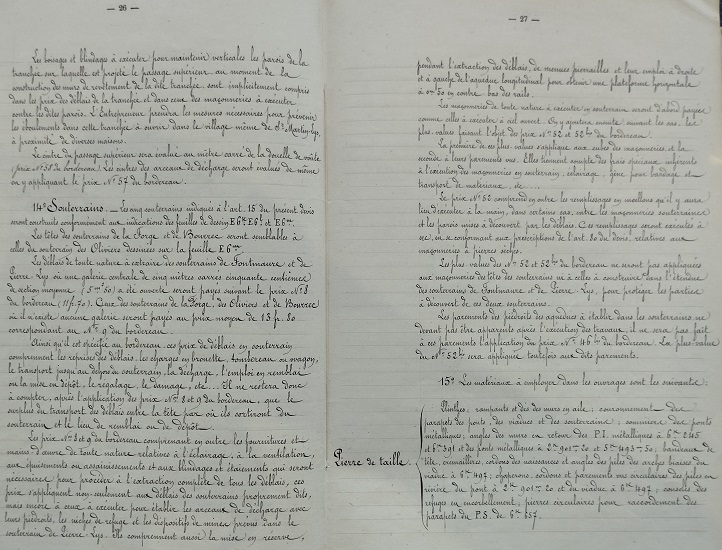 — 26 —
Les boisages et blindages à exécuter pour maintenir verticales les parois de la
tranchée sur laquelle est projeté le passage supérieur au moment de la
construction des murs de revêtement de la dite tranchée sont implicitement compris
dans les prix des déblais de la tranchée et dans ceux des maçonneries à exécuter
contre les dites parois. L'Entrepreneur prendra les mesures nécessaires pour prévenir
les éboulements dans cette tranchée à ouvrir dans le village même de St Martin-Lys,
à proximité de diverses maisons.
Le cintre du passage supérieur sera évalué au mètre carré de la douelle de voûte
(prix No 58 du bordereau). Les cintres des arceaux de décharge seront évalués de même
en y appliquant le prix No 57 du bordereau.
14o Souterrains. — Les cinq souterrains indiqués à l'art. 15 du présent devis
seront construits conformément aux indications des feuilles de dessin
Les têtes des souterrains de la Forge et de Bourrec seront semblables à
celles du souterrain des Oliviers dessinées sur la feuille
Les déblais de toute nature à extraire des souterrains de Fontmaure et de
Pierre-Lys où une galerie centrale de cinq mètres carrés cinquante centièmes
de section moyenne (5mq 50) a été ouverte seront payés suivant le prix No 8
du bordereau (11 fr. 70). Ceux des souterrains de la Forge, des Oliviers et de Bourrec
où il n'existe aucune galerie seront payés au prix moyen de 13 fr. 80
correspondant au No 9 du bordereau.
Ainsi qu'il est spécifié au bordereau, ces prix de déblais en souterrain
comprennent les reprises des déblais, les charges en brouette, tombereau ou wagon,
le transport jusqu'au dehors du souterrain, la décharge, l'emploi en remblai
ou la mise en dépôt, le régalage, le damage, etc.... Il ne restera donc
à compter, après l'application des prix Nos 8 et 9 du bordereau, que le
surplus du transport des déblais entre la tête par où ils sortiront du
souterrain et le lieu de remblai ou de dépôt.
Les prix Nos 8 et 9 du bordereau comprennent en outre les fournitures et
mains-d'œuvre de toute nature relatives à l'éclairage, à la ventilation,
aux épuisements ou assainissements et aux blindages et étaiements qui seront
nécessaires pour procéder à l'extraction complète de tous les déblais, ces
prix s'appliquent non-seulement aux déblais des souterrains proprement dits,
mais encore à ceux à exécuter pour établir les arceaux de décharge avec
leurs piédroits, les niches de refuge et les dispositifs de mines prévus dans le
souterrain de Pierre-Lys. Ils comprennent aussi la mise en réserve,
— 27 —
pendant l'extraction des déblais, de menues pierrailles et leur emploi à droite
et à gauche de l'aqueduc longitudinal pour obtenir une plateforme horizontale
à 0m 50 en contre bas des rails.
Les maçonneries de toute nature à exécuter en souterrain seront d'abord payées
comme celles à exécuter à ciel ouvert. On y ajoutera ensuite suivant les cas, les
plus-values faisant l'objet des prix No 52 et 52 bis du bordereau.
La première de ces plus-values s'applique aux cubes des maçonneries et la
seconde à leurs parements vus. Elles tiennent compte des frais spéciaux inhérents
à l'exécution des maçonneries en souterrain, éclairage, gêne pour bardage et
transport de matériaux, &c....
Le prix No 52 comprend en outre les remplissages en moellons qu'il y aura
lieu d'exécuter à la main, dans certains cas, entre les maçonneries souterraines
et les parois mises à découvert par les déblais. Ces remplissages seront exécutés à
sec, en se conformant aux prescriptions de l'art. 80 du devis, relatives aux
maçonneries à pierres sèches.
Les plus-values des Nos 52 et 52 bis du bordereau ne seront pas appliquées
aux maçonneries des têtes des souterrains ni à celles à construire dans l'étendue
des souterrains de Fontmaure et de Pierre-Lys, pour protéger les parties
à découvert de ces deux souterrains.
Les parements des piédroits des aqueducs à établir dans les souterrains ne
devant pas être apparents après l'exécution des travaux, il ne sera pas fait
à ces parements l'application du prix No 46 bis du bordereau. La plus-value
du No 52 bis sera appliquée toutefois aux dits parements.
15o Les matériaux à employer dans les ouvrages sont les suivants:
Pierre de taille
Plinthes, rampants et dés des murs en aile; couronnement des
parapets des ponts, des viaducs et des souterrains; sommiers des ponts
métalliques; angles des murs en retour des P.I. métalliques à
et des ponts métalliques à bandeaux de
tête, crémaillère, cordons des naissances et angles des piles des arches biaises du
viaduc à chaperons, cordons et parements vus circulaires des piles en
rivière du pont à et du viaduc à consoles des
refuges en encorbellement; pierres circulaires pour raccordement des
parapets du P.S. de